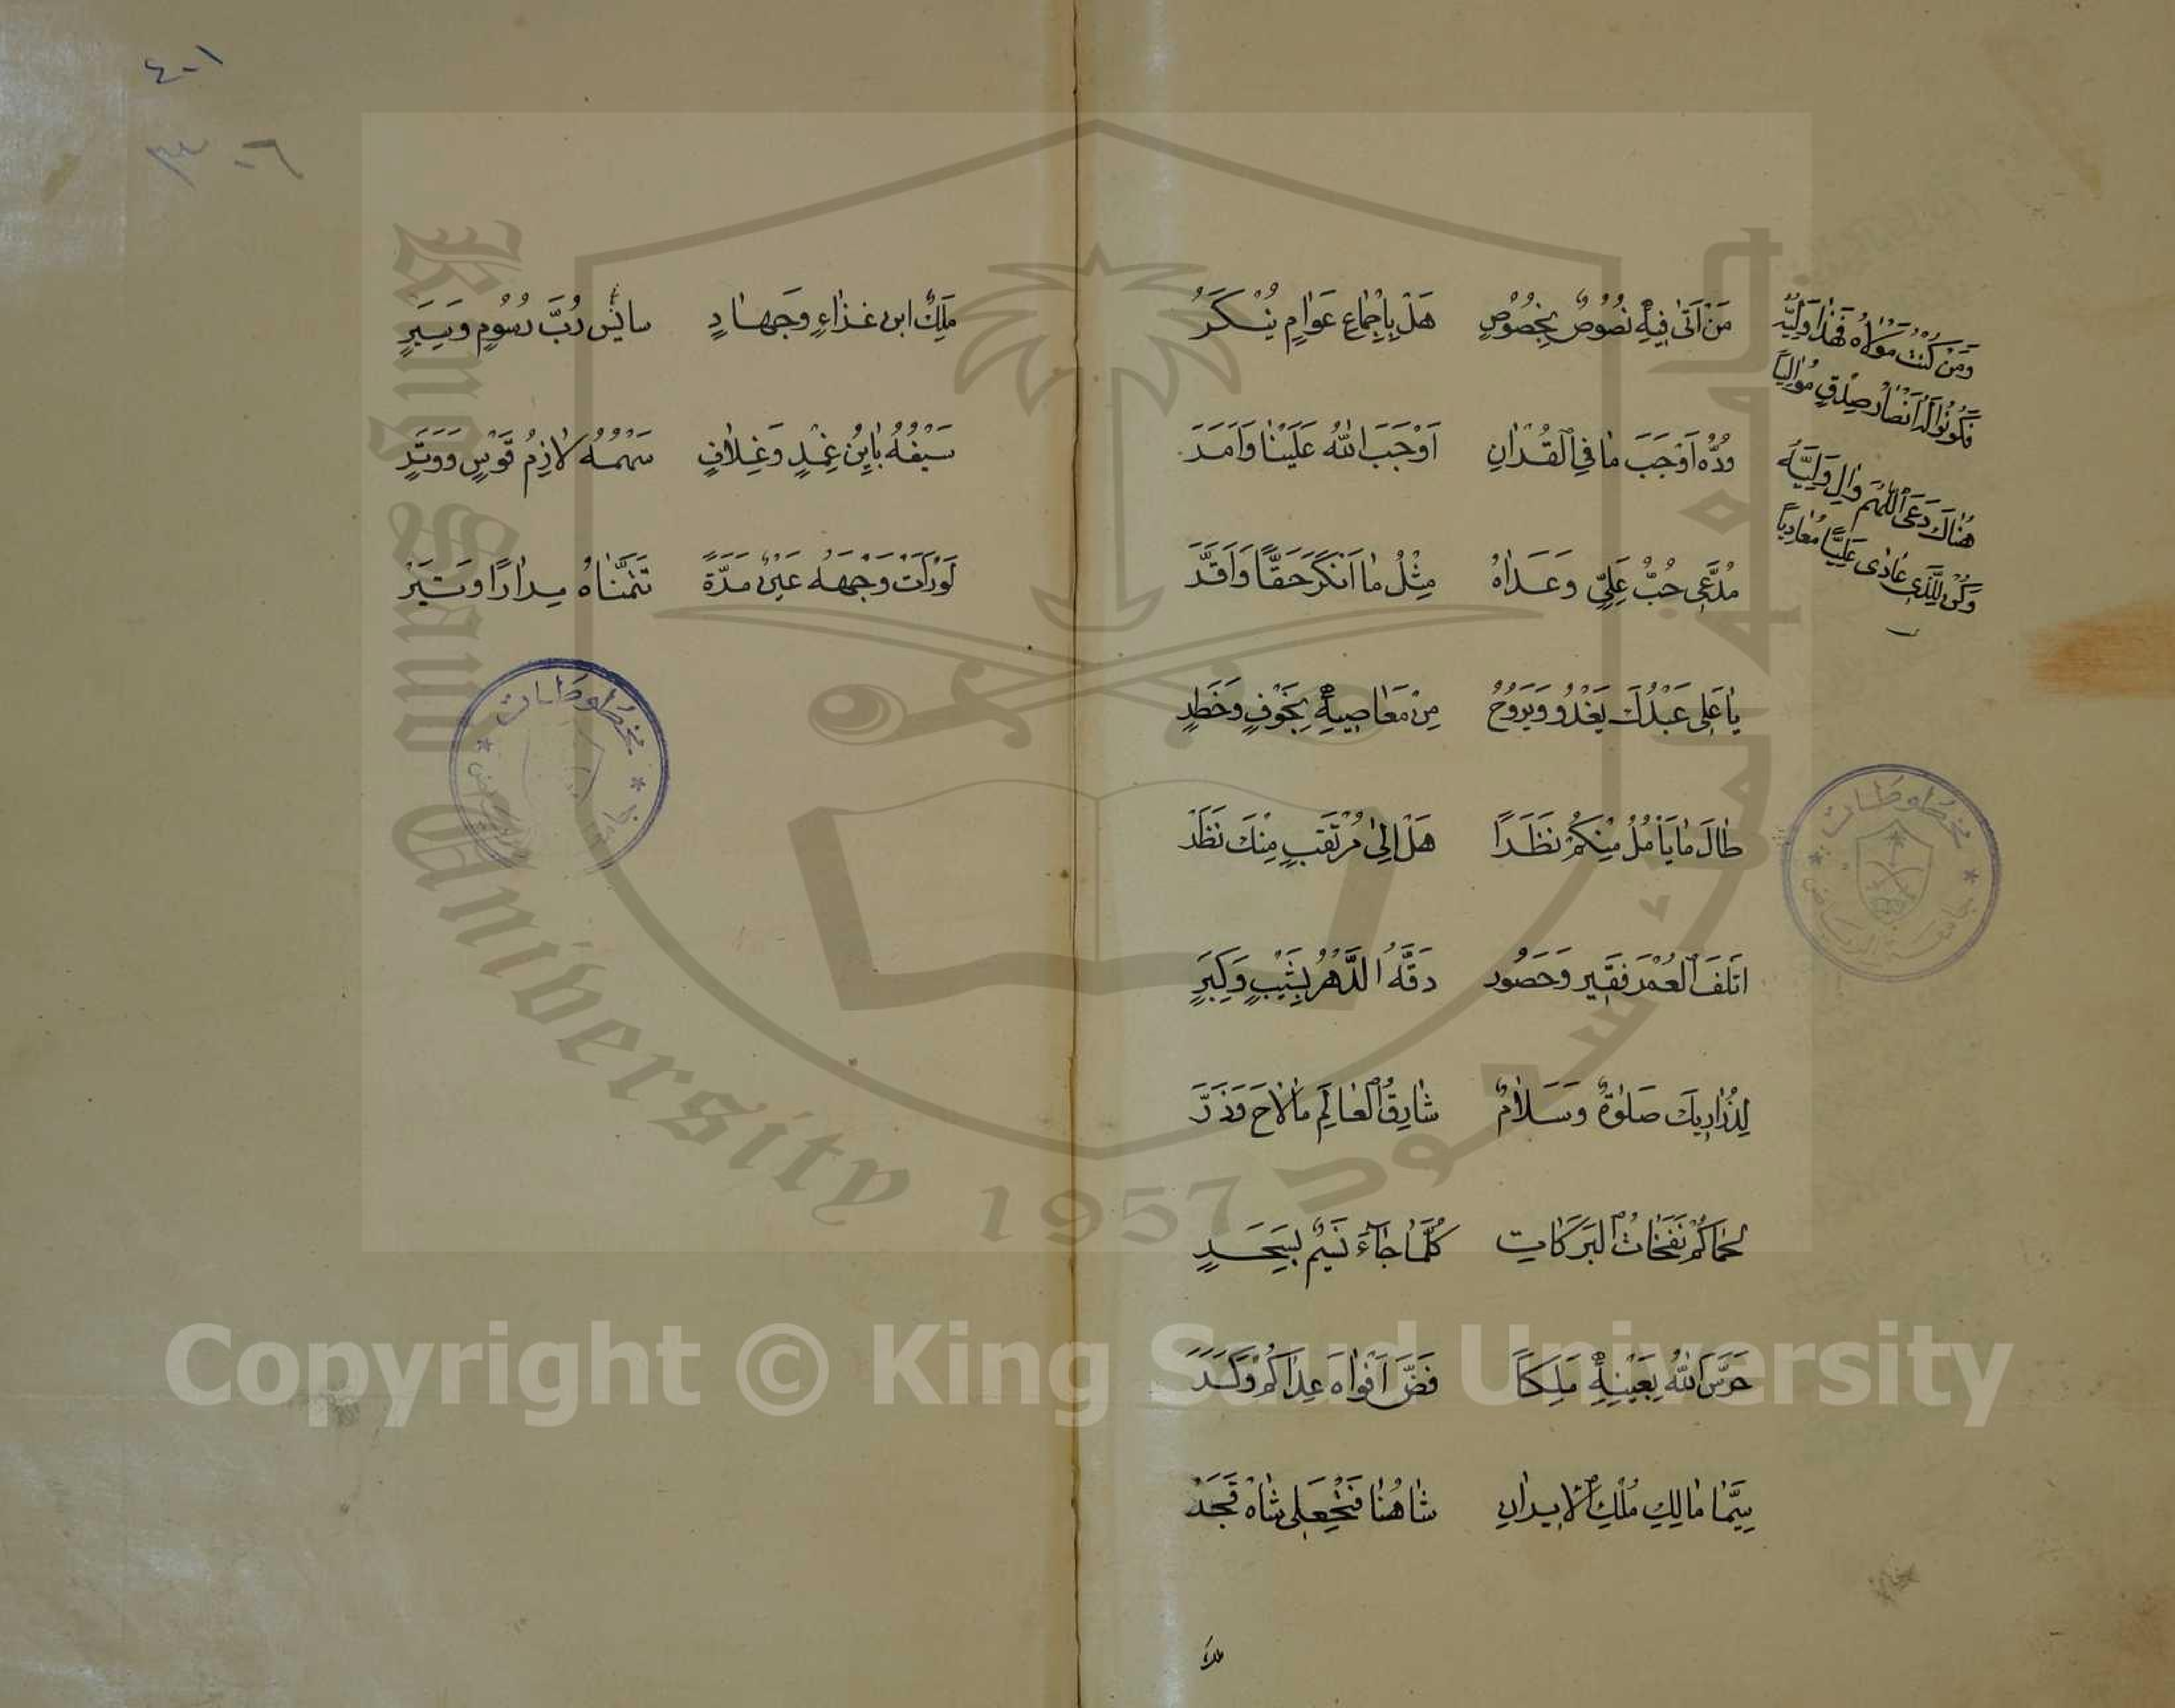 مَنْ اَتٰى فِيهِ نُصُوصٌ بِخُصُوصٍ هَلْ بِاِجْمَاعِ عَوَامٍ يُنْكَرُ
وُدُّهُ اَوْجَبَ مٰا فِي الْقُرْاٰنِ اَوْجَبَ اللّٰهُ عَلَيْنٰا وَاَمَرَ
مُدَّعِى حُبُّ عَلِىٍّ وَعَدَاهُ مِثْلُ مٰا اَنْكَرَ حَقًّا وَاَقَرَّ
يٰا عَلِى عَبْدُكَ يَغْدُو وَيَرُوحُ مِنْ مَعٰاصِيهِ بِخَوْفٍ وَخَطَرٍ
طٰالَ مٰا يَأْمُلُ مِنْكُمْ نَظَرًا هَلْ اِلىٰ مُرْتَقَبٍ مِنْكَ نَظَرْ
اتَلَفَ الْعُمْرَ فَقِير وَحَصُور دَقَّهُ الدَّهْرُ بِشَيْبٍ وَكِبَرٍ
صَلٰوةٌ وَسَلاٰمٌ شٰارِقُ الْعٰالَمِ مٰا لاٰحَ وَذَرَّ
نَفَحٰاتُ الْبَرَكَاتِ كُلَّمٰا جٰآءَ نَسِيمٌ بِسَحَرٍ
حَرَسَ اللّٰهُ بِعَيْنِهِ مَلِكاً فَضَّ اَفْوٰاهَ عِدٰاكُمْ وَكَسَرَ
سِيَّمٰا مٰالِكِ مُلْكِ الْاِيرانِ شٰاهُنٰا فَتْحْعَلِى شٰاهْ قَجَرْ
وَمَنْ كُنْتُ مَوْلاٰهُ فَهٰذٰا وَلِيُّهُ
فَكُونُوا لَهُ اَنْصٰارَ صِدْقٍ مُوٰالِيًا
هُنٰاكَ دَعَى اَللّٰهُمَّ وٰالِ وَلِيَّهُ
وَكُنْ لِلَّذِى عٰادٰى عَلِيًّا مُعٰادِيًا
مخطوطات
جامعة الرياض
مَلِكٌ ابن وَجِهٰادٍ سائِس رُبَّ رُسُومٍ وَسِيَرٍ
سَيْفُهُ بٰايِنُ غِمْدٍ وَغِلاٰفٍ سَهْمُهُ لاٰزِمُ قَوْسٍ وَوَتَرٍ
لَوْ رَاَتْ وَجْهَهُ عَيْنٌ مَرَّةً تَتَمَنّٰاهُ مِرٰارًا
مخطوطات
جامعة الرياض
٤٠١
جامعة الملك سعود
King Saud University
1957
Copyright © King Saud University